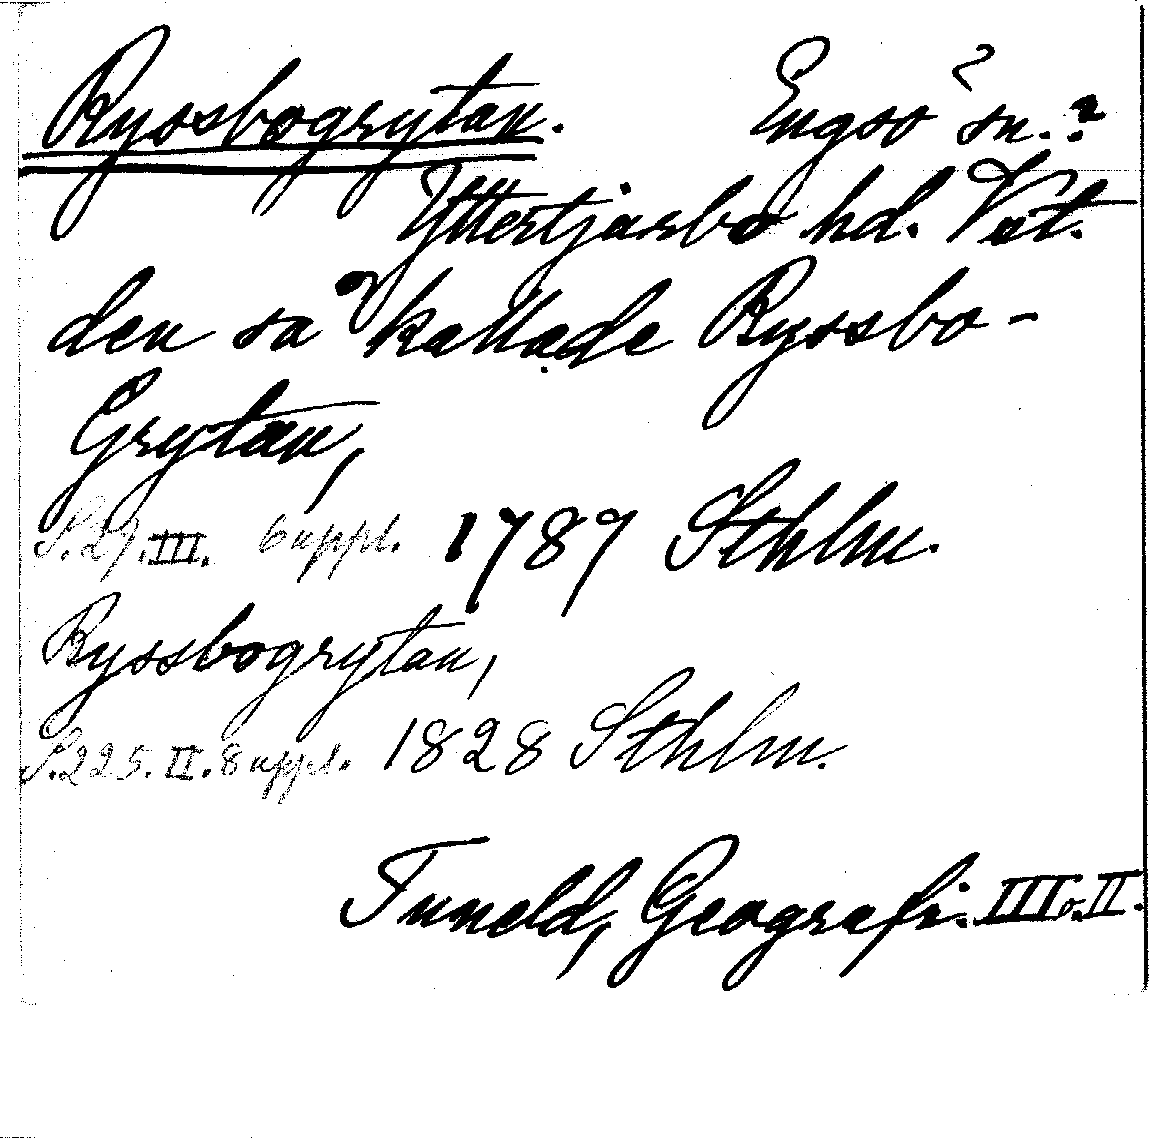 Ryssbogrytan. Engsö sn.?
Yttertjurbo hd. Väst.
den så kallade Ryssbo-
Grytan,
S. 27. III. 6 uppl. 1787 Sthlm.
Ryssbogrytan,
S. 225. II. 8 uppl. 1828 Sthlm.
Tuneld, Geografi. III o. II.